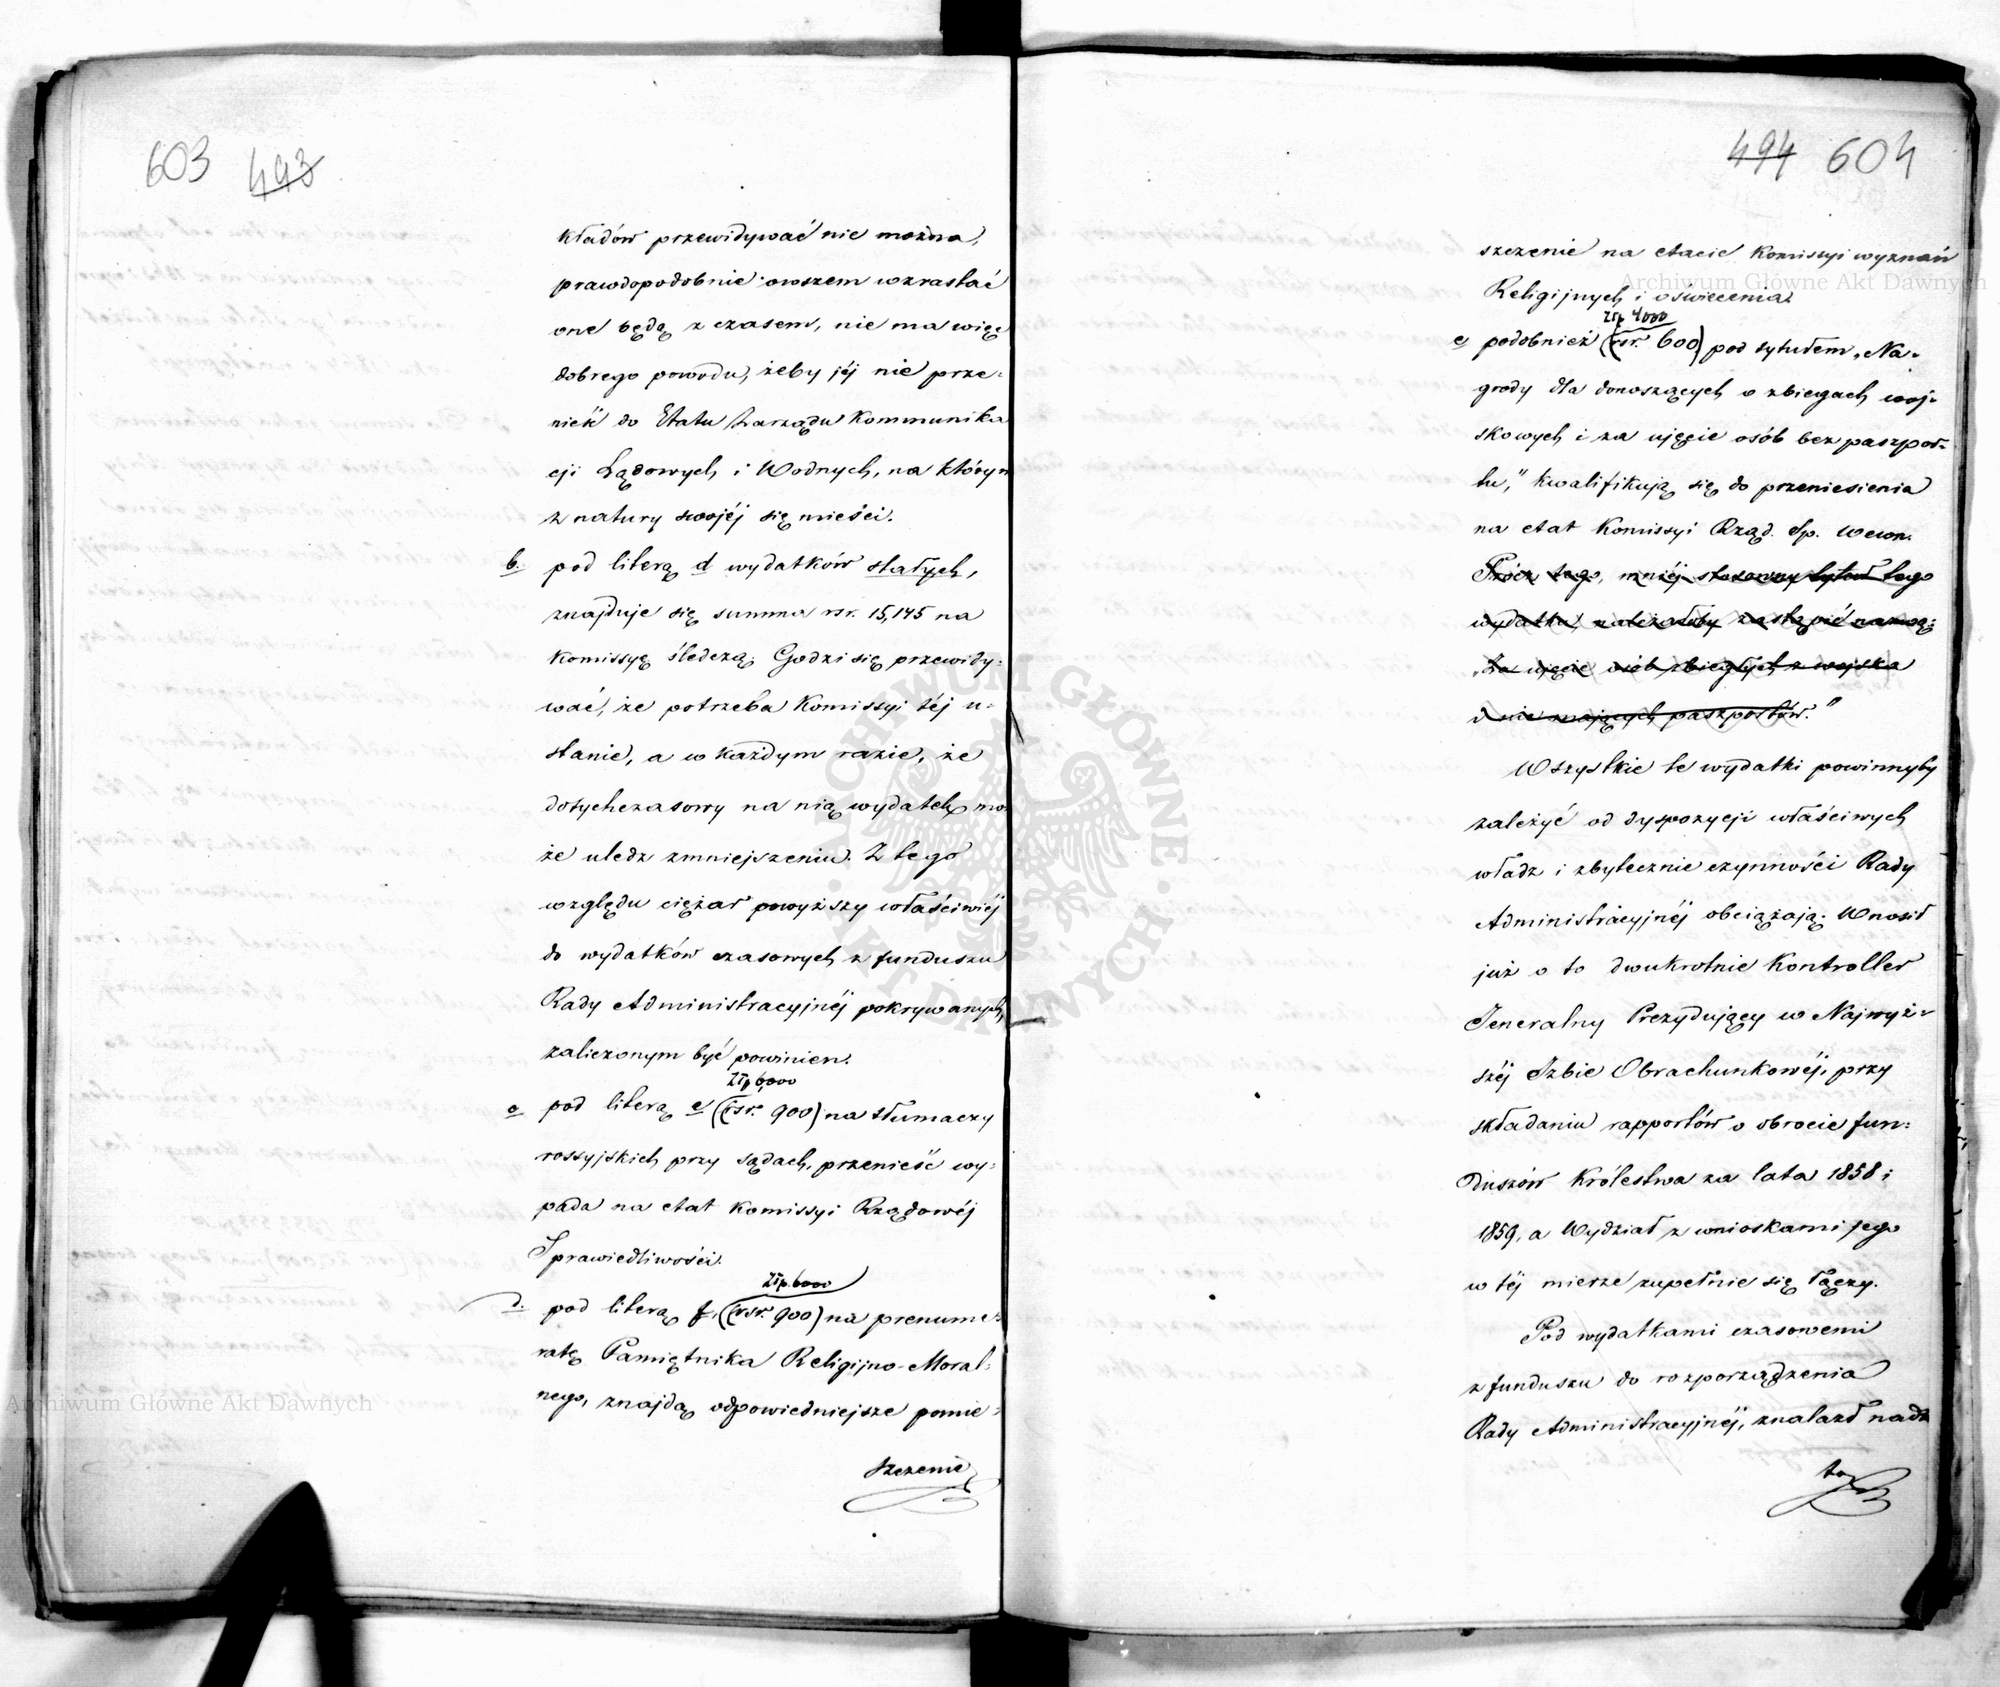 603 493
kładów przewidywać nie można,
prawdopodobnie owszem wzrastać
one będą z czasem, nie ma więc
dobrego powodu, żeby jéj nie prze-
nieść do Etatu Zarządu Kommunika
cji Lądowych i Wodnych, na którym
z natury swojéj się mieści.
b. pod literą d wydatków stałych,
znajduje się summa rsr. 15,145 na
Komissyę śledczą. Godzi się przewidy-
wać, że potrzeba Komissyi téj u-
stanie, a w każdym razie, że
dotychczasowy na nią wydatek mo
że uledz zmniejszeniu. Z tego
względu ciężar powyższy właściwiéj
do wydatków czasowych z funduszu
Rady Administracyjnéj pokrywanych,
zaliczonym być powinien.
złp 6,000
c pod literą e (rsr. 900) na tłumaczy
rossyjskich przy sądach, przenieść wy-
pada na etat Komissyi Rządowéj
Sprawiedliwości.
złp. 6000
d. pod literą f, (rsr. 900) na prenume-
ratę Pamiętnika Religijno-Moral-
nego, znajdą odpowiedniejsze pomie-
szczenie
494 604
szczenie na etacie Komissyi wyznań
Religijnych i oświecenia
złp 4000
e podobnież (rsr. 600) pod tytułem „Na-
grody dla donoszących o zbiegach woj-
skowych i za ujęcie osób bez paszpor-
tu," kwalifikują się do przeniesienia
na etat Komissyi Rząd. Sp. Wewn.
Prócz tego, mniéj stosowny tytuł tego
wydatku należałoby zastąpić nazwą:
„Za ujęcie osób zbiegłych z wojska
i nie mających paszportów."
Wszystkie te wydatki powinnyby
zależyć od dyspozycji właściwych
władz i zbytecznie czynności Rady
Administracyjnéj obciążają. Wnosił
już o to dwukrotnie Kontroller
Jeneralny Prezydujący w Najwyż-
széj Izbie Obrachunkowéj, przy
składaniu rapportów o obrocie fun-
duszów Królestwa za lata 1858 i
1859, a Wydział z wnioskami jego
w téj mierze zupełnie się łączy.
Pod wydatkami czasowemi
z funduszu do rozporządzenia
Rady Administracyjnéj, znalazł nadto
to
Archiwum Główne Akt Dawnych
Archiwum Główne Akt Dawnych
ARCHIWUM GŁÓWNE · AKT DAWNYCH ·